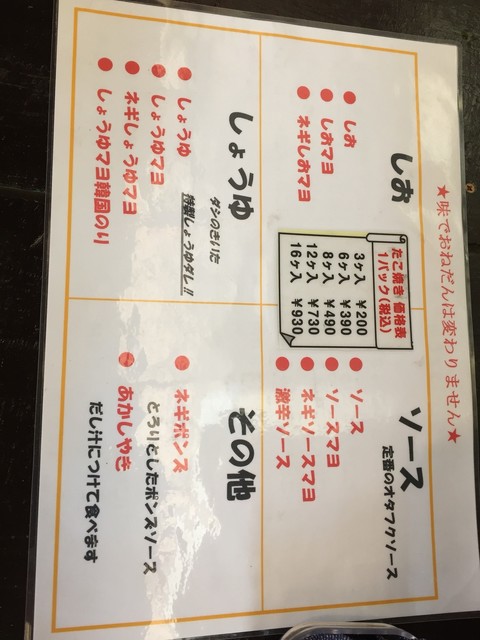 ★味でおねだんは変わりません★
しお
●しお
●しおマヨ
●ネギしおマヨ
ソース
定番のオタフクソース
●ソース
●ソースマヨ
●ネギソースマヨ
●激辛ソース
たこ焼き 価格表
1パック(税込)
3ヶ入 ¥200
6ヶ入 ¥390
8ヶ入 ¥490
12ヶ入 ¥730
16ヶ入 ¥930
しょうゆ
ダシのきいた
特製しょうゆダレ!!
●しょうゆ
●しょうゆマヨ
●ネギしょうゆマヨ
●しょうゆマヨ韓国のり
その他
●ネギポンズ
とろりとしたポンズソース
●あかしやき
だし汁につけて食べます